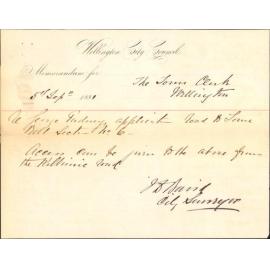 Wellington City Council
Memorandum for
The Town Clerk
Wellington
5th Sepr 1881
Re George application road to
Sect No 6
Access can be given to the above from
the road
J D Baird
City Surveyor